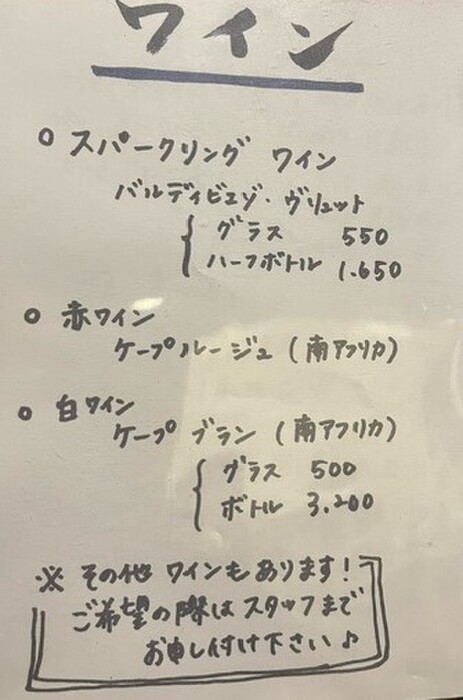 ワイン
○ スパークリング ワイン
バルディビエゾ・ヴリュット
グラス 550
ハーフボトル 1.650
○ 赤ワイン
ケープルージュ(南アフリカ)
○ 白ワイン
ケープ ブラン(南アフリカ)
グラス 500
ボトル 3.200
※ その他 ワインもあります!
ご希望の際はスタッフまで
お申し付け下さい♪